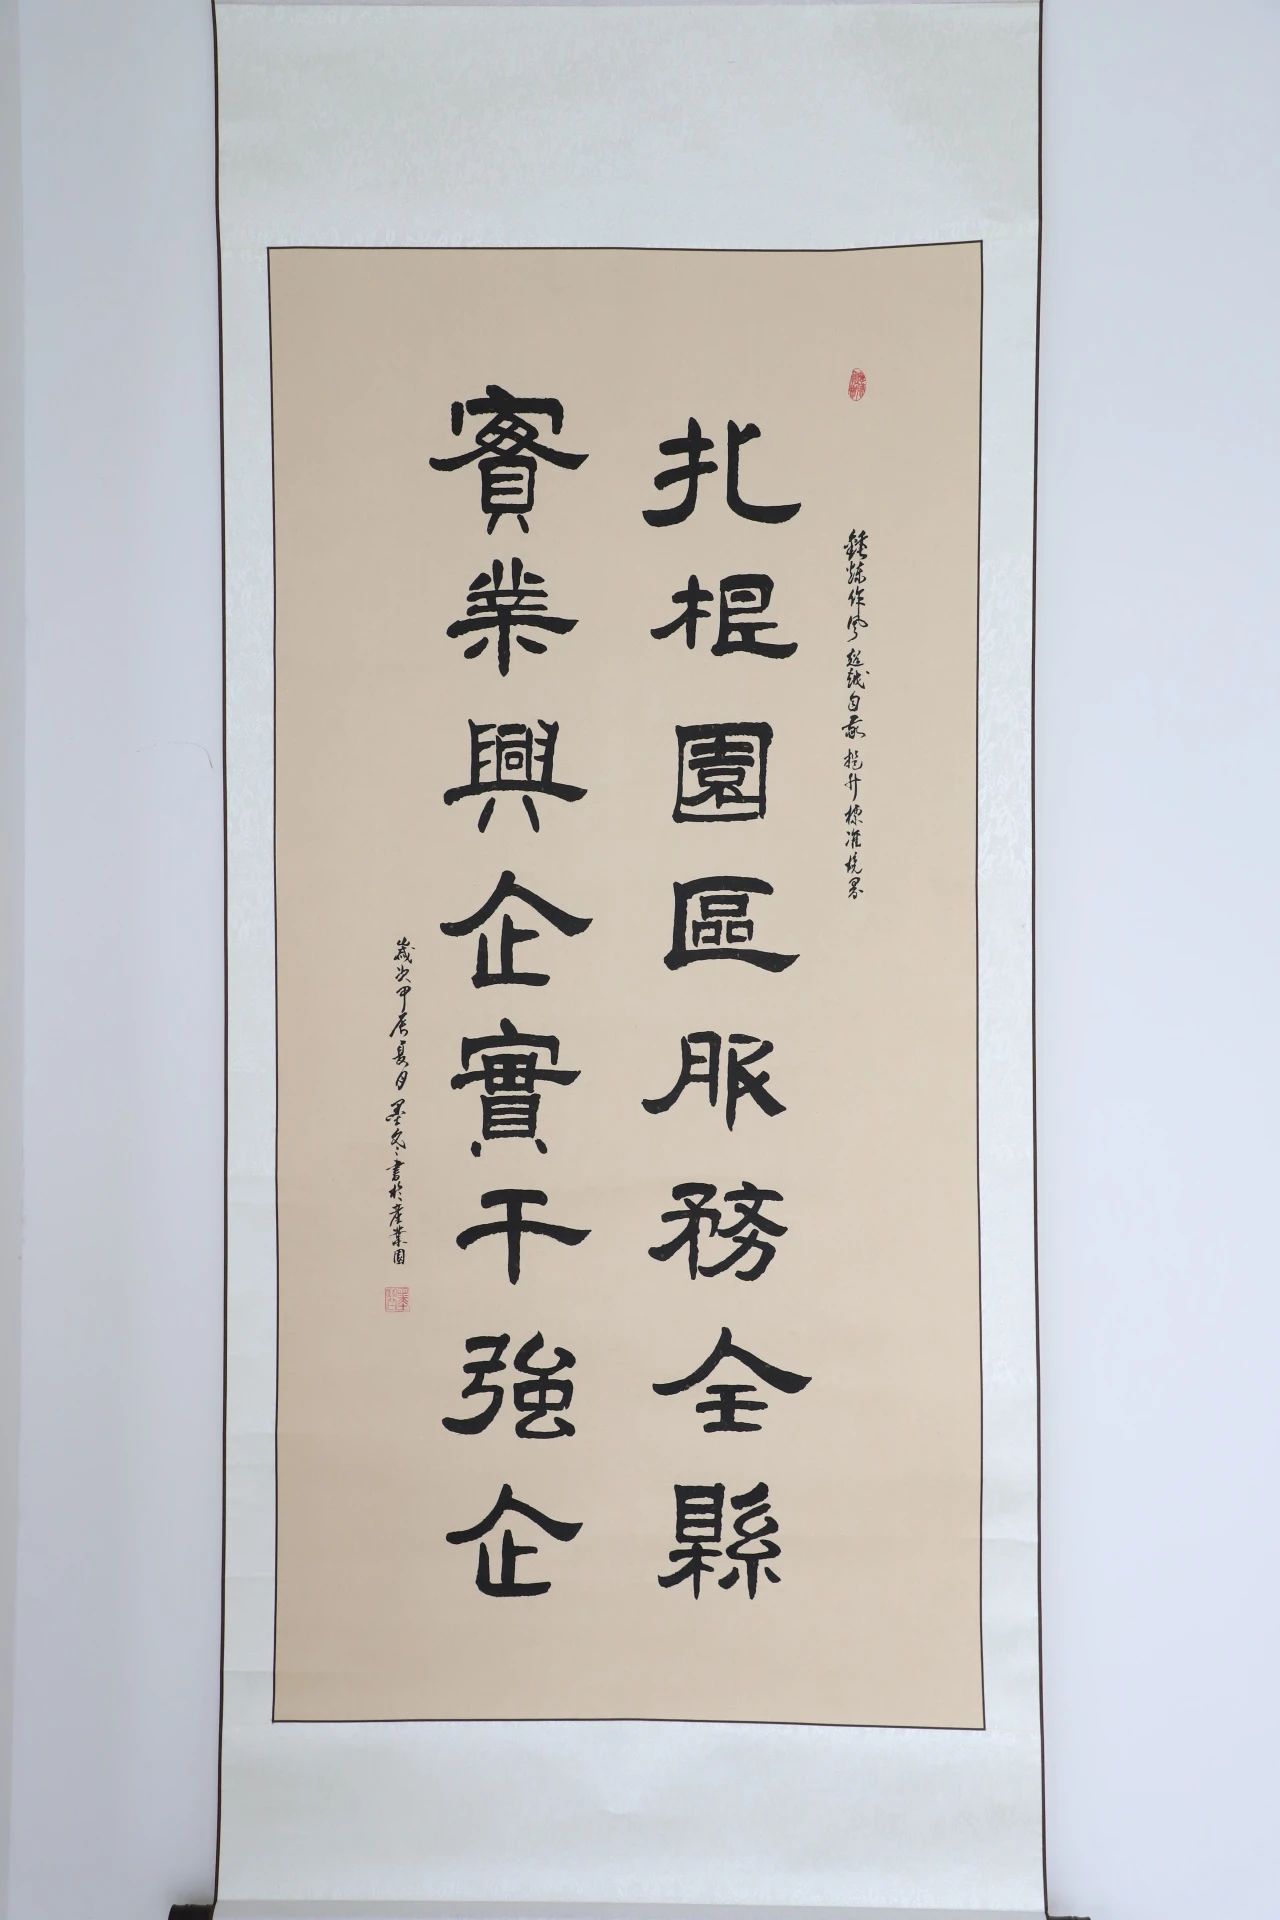 鍾煉作風 超越自我 提升標准境界
扎根園區服務全縣
實業興企實干強企
歲次甲辰夏月墨文書於產業園